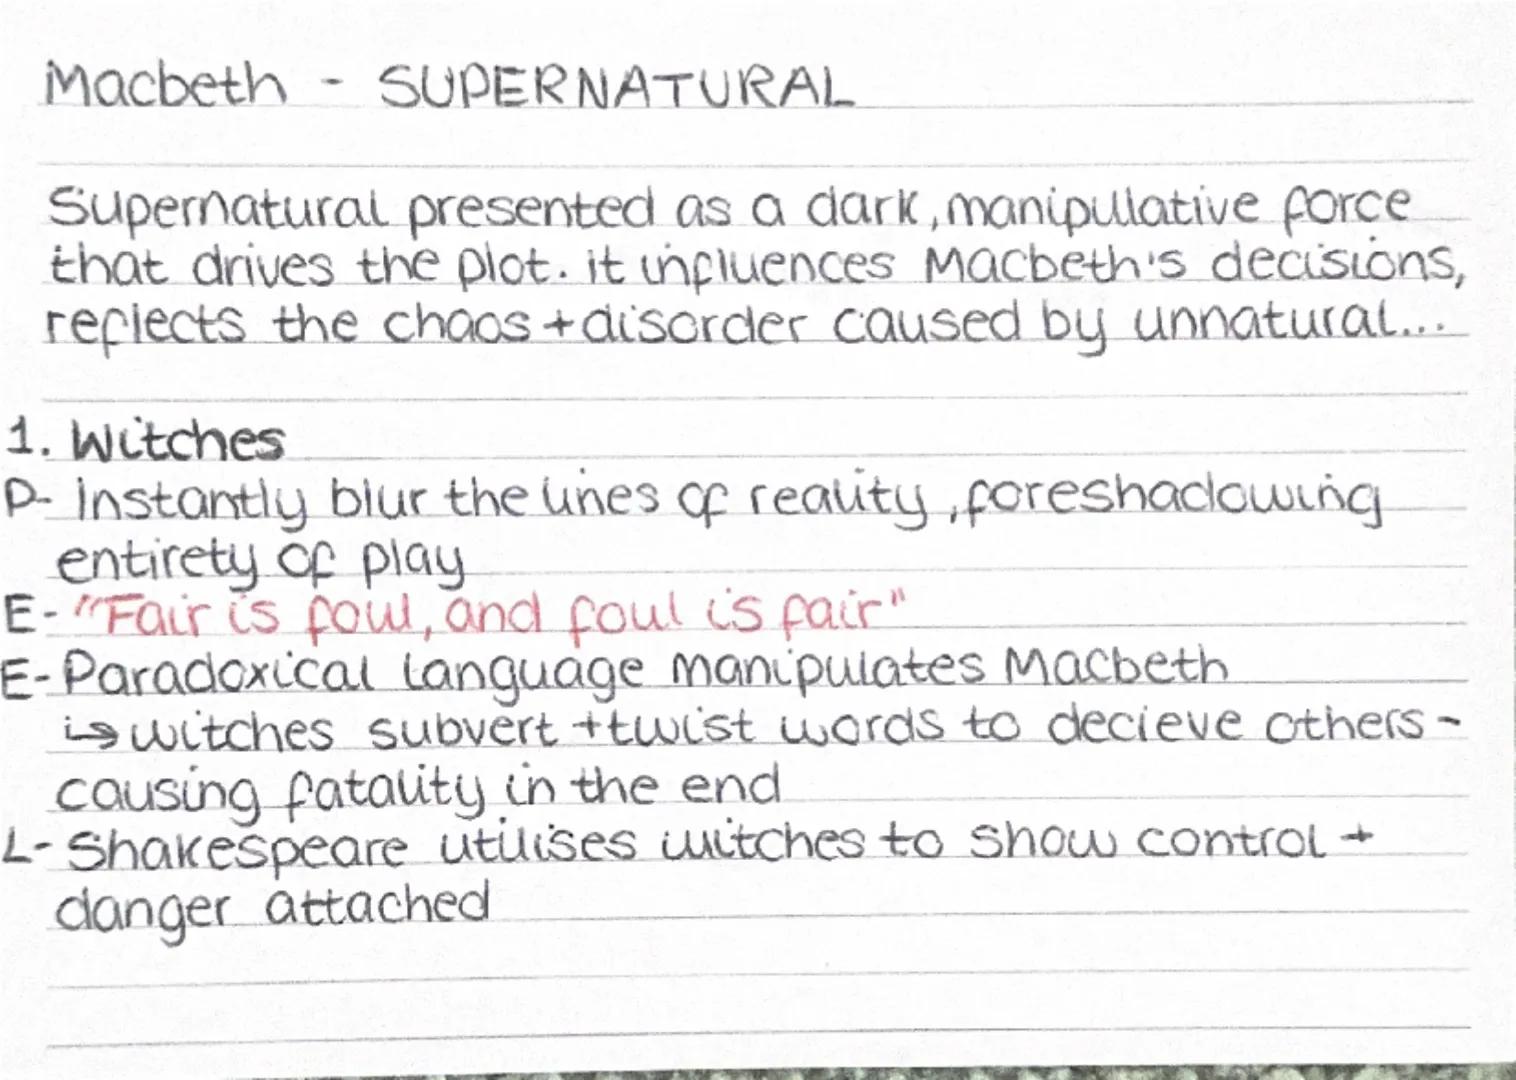 Macbeth - SUPERNATURAL
Supernatural presented as a dark, manipulative force
that drives the plot. it influences Macbeth's decisions,
reflects the chaos + disorder caused by unnatural...
1. Witches
P- instantly blur the lines of reality, foreshadowing
entirety of play
E- "Fair is foul, and foul is fair"
E- Paradoxical language manipulates Macbeth
↳ witches subvert + twist words to decieve others -
causing fatality in the end
L- Shakespeare utilises witches to show control +
danger attached